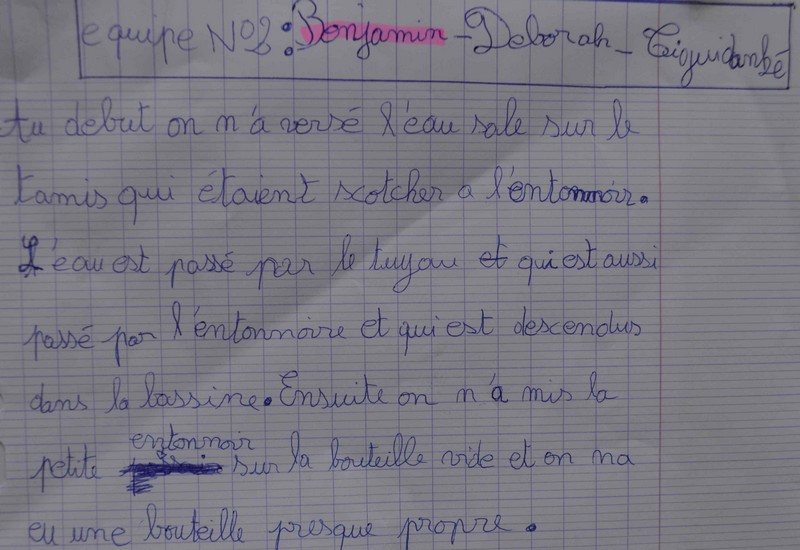 equipe N°2: Benjamin - Deborah - Tiguidanké
Au debut on n'a versé l'eau sale sur le
tamis qui étaient scotcher a l'entonnoir.
L'eau est passé par le tuyau et qui est aussi
passé par l'entonnoire et qui est descendus
dans la bassine. Ensuite on n'a mis la
petite entonnoir sur la bouteille vide et on na
eu une bouteille presque propre.